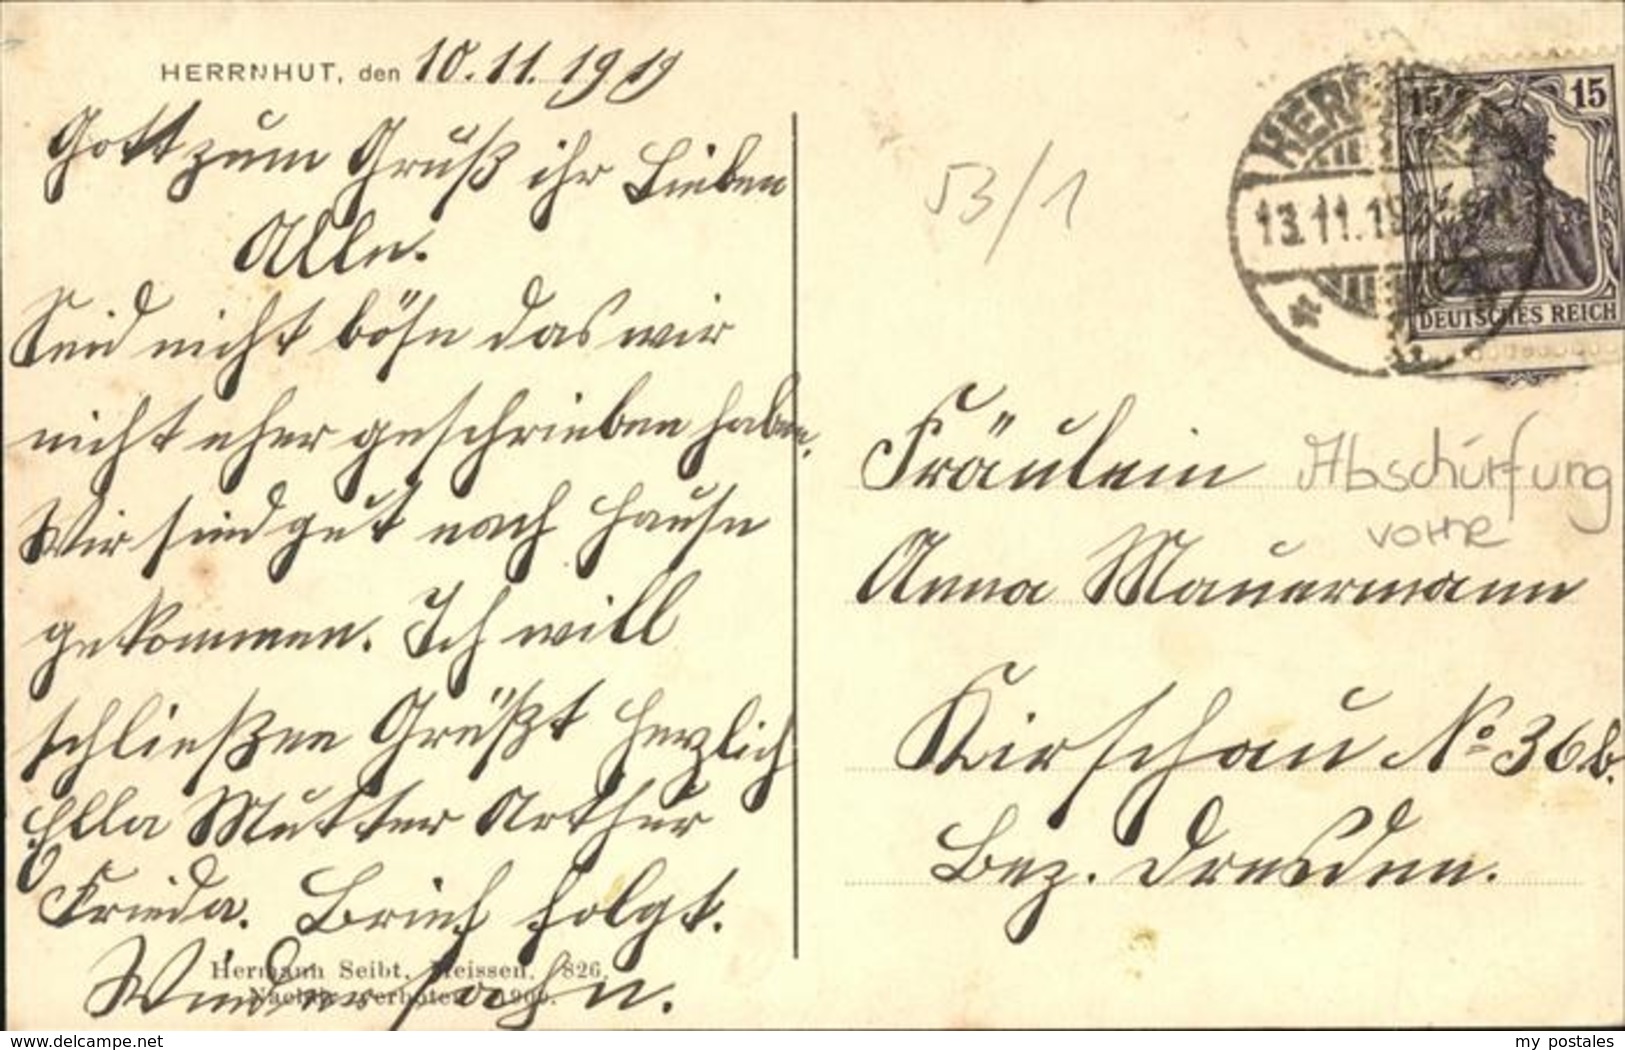 HERRNHUT, den 10.11.1919
Gott zum Gruß ihr Lieben
Alle.
Seid nicht böse das wir
nicht eher geschrieben haben.
Wir sind gut nach Hause
gekommen. Ich will
schließen Grüßt herzlich
Ella Mutter Arthur
Frieda. Brief folgt.
Wiedersehn.
Hermann Seibt, Meissen, 826.
Nachdr. verboten. 1909.
53/1
HERRNHUT
13.11.19
15 15
DEUTSCHES REICH
Fräulein
Abschürfung
vorne
Anna Mauermann
Kirschau No 36b.
Bez. Dresden.
delcampe.net
my_postales